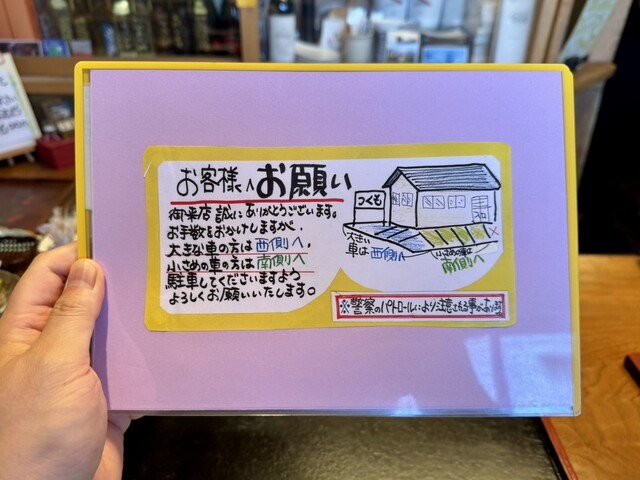 お客様へお願い
御来店誠にありがとうございます。
お手数をおかけしますが、
大きな車の方は西側へ、
小さめの車の方は南側へ
駐車してくださいますよう
よろしくお願いいたします。
つくも
大きい
車は西側へ
小さめの車は
南側へ
※警察のパトロールにより注意される事があります